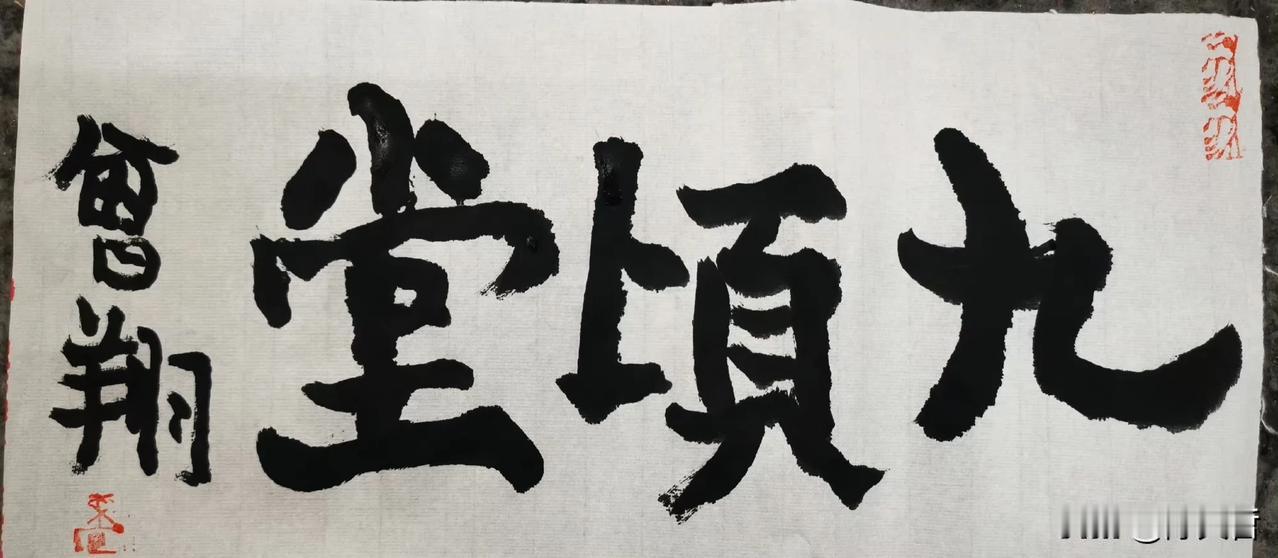 九頃堂
曾翔